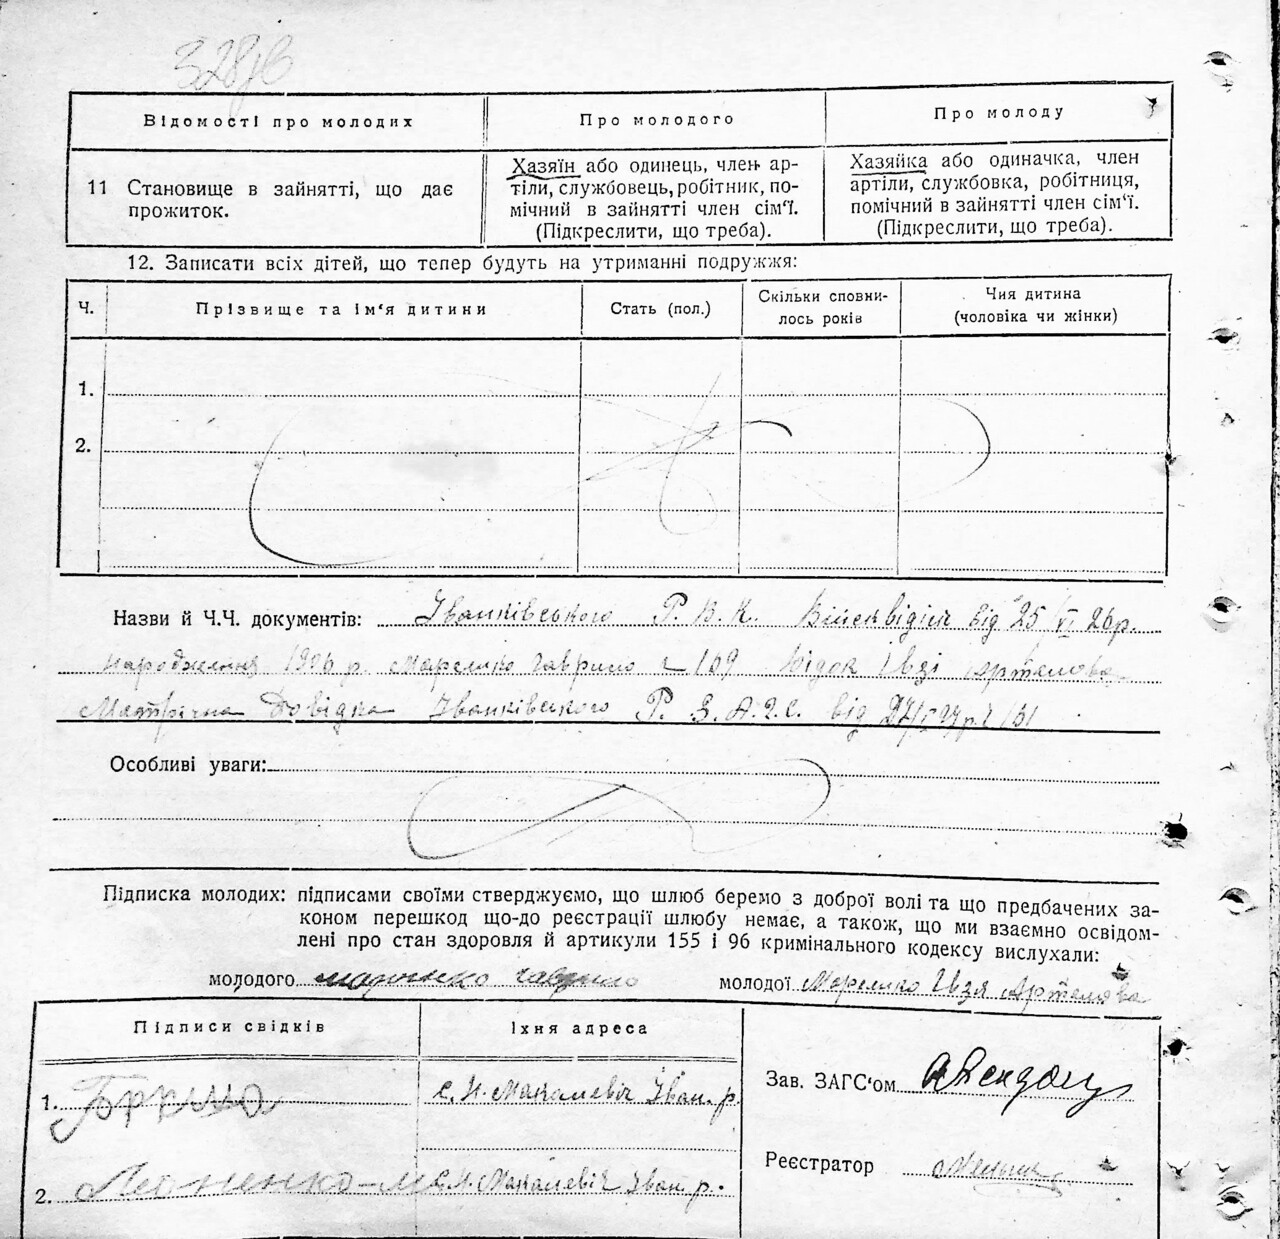 328
Відомості про молодих
Про молодого
Про молоду
11 Становище в зайнятті, що дає
прожиток.
Хазяїн або одинець, член ар-
тіли, службовець, робітник, по-
мічний в зайнятті член сім'ї.
(Підкреслити, що треба).
Хазяйка або одиначка, член
артіли, службовка, робітниця,
помічний в зайнятті член сім'ї.
(Підкреслити, що треба).
12. Записати всіх дітей, що тепер будуть на утриманні подружжя:
Ч.
Прізвище та ім'я дитини
Стать (пол.)
Скільки сповни-
лось років
Чия дитина
(чоловіка чи жінки)
1.
2.
Назви й Ч.Ч. документів: Іванківського Р. В. К. від 25/VI 26 р.
народження 1906 р. Марченко Гаврило 169
Метрична Довідка Іванківського Р. З.А.Г.С. від
Особливі уваги:
Підписка молодих: підписами своїми стверджуємо, що шлюб беремо з доброї волі та що предбачених за-
коном перешкод що-до реєстрації шлюбу немає, а також, що ми взаємно освідом-
лені про стан здоровля й артикули 155 і 96 кримінального кодексу вислухали:
молодого Марченко Гаврило молодої Марченко
Підписи свідків
Їхня адреса
1. с. Н. Макалевічі Іван. р.
2. с. Н. Макалевічі Іван. р.
Зав. ЗАГС'ом
Реєстратор